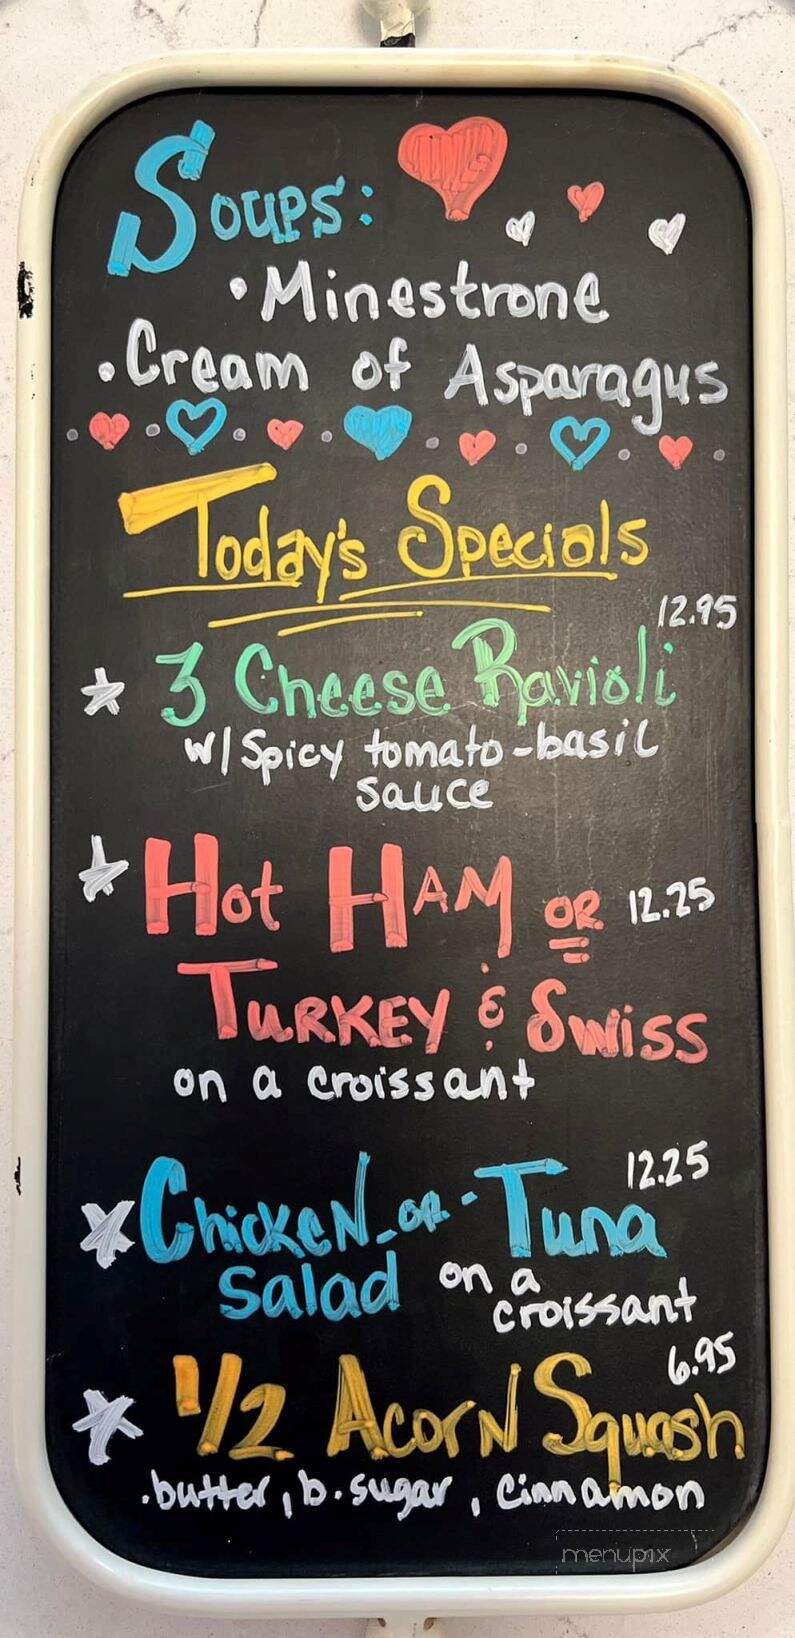 Soups:
•Minestrone
•Cream of Asparagus
Today's Specials
12.95
3 Cheese Ravioli
w/ Spicy tomato-basil
sauce
Hot HAM OR 12.25
TURKEY & Swiss
on a croissant
12.25
Chicken -or- Tuna
Salad on a
croissant
6.95
1/2 Acorn Squash
.butter, b. sugar, cinnamon
menupix